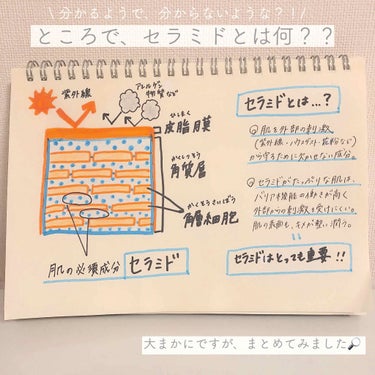 \ 分かるようで、分からないような？！ /
ところで、セラミドとは何？？
紫外線
アレルゲン
物質など
ひしまく
皮脂膜
かくしつそう
角質層
かくそうさいぼう
角層細胞
肌の必須成分 セラミド
セラミドとは…？
肌を外部の刺激
(紫外線・ハウスダスト・花粉など)
から守るために欠かせない成分。
セラミドがたっぷりな肌は、
バリア機能の働きが高く
外部からの刺激を受けにくい。
肌の表面も、キメが整い潤う。
セラミドはとっても重要!!
大まかにですが、まとめてみました🔎